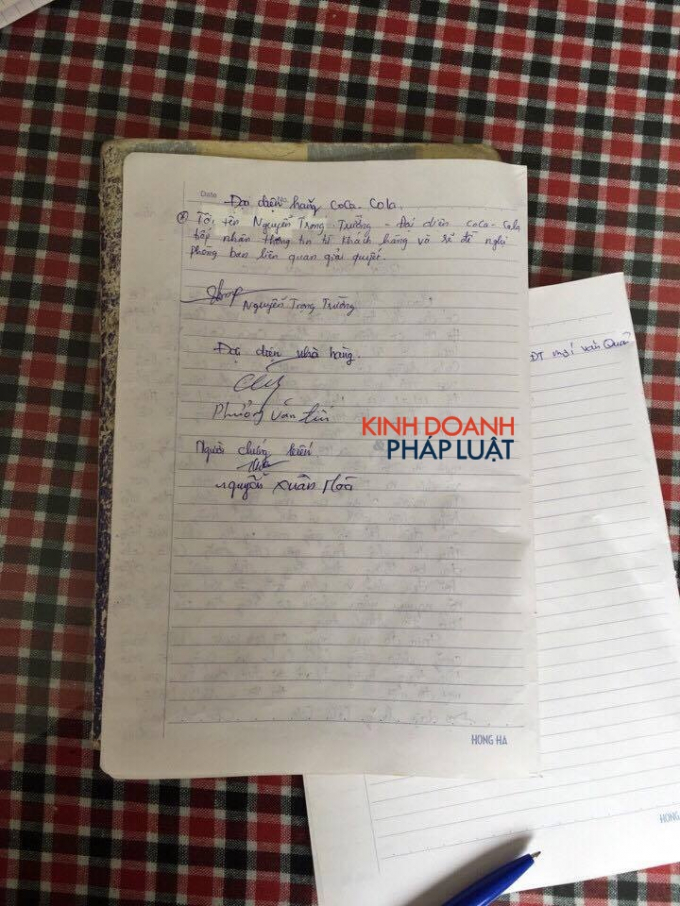 Date
Đại diện hãng CoCa-Cola.
Tôi tên Nguyễn Trọng Trưởng - Đại diện CoCa-Cola
tiếp nhận thông tin từ khách hàng và sẽ đề nghị
phòng ban liên quan giải quyết.
Nguyễn Trọng Trưởng
Đại diện nhà hàng
ĐT mới Văn Quán
Văn
KINH DOANH
PHÁP LUẬT
Người chứng kiến
Nguyễn Xuân
HONG HA
HONG